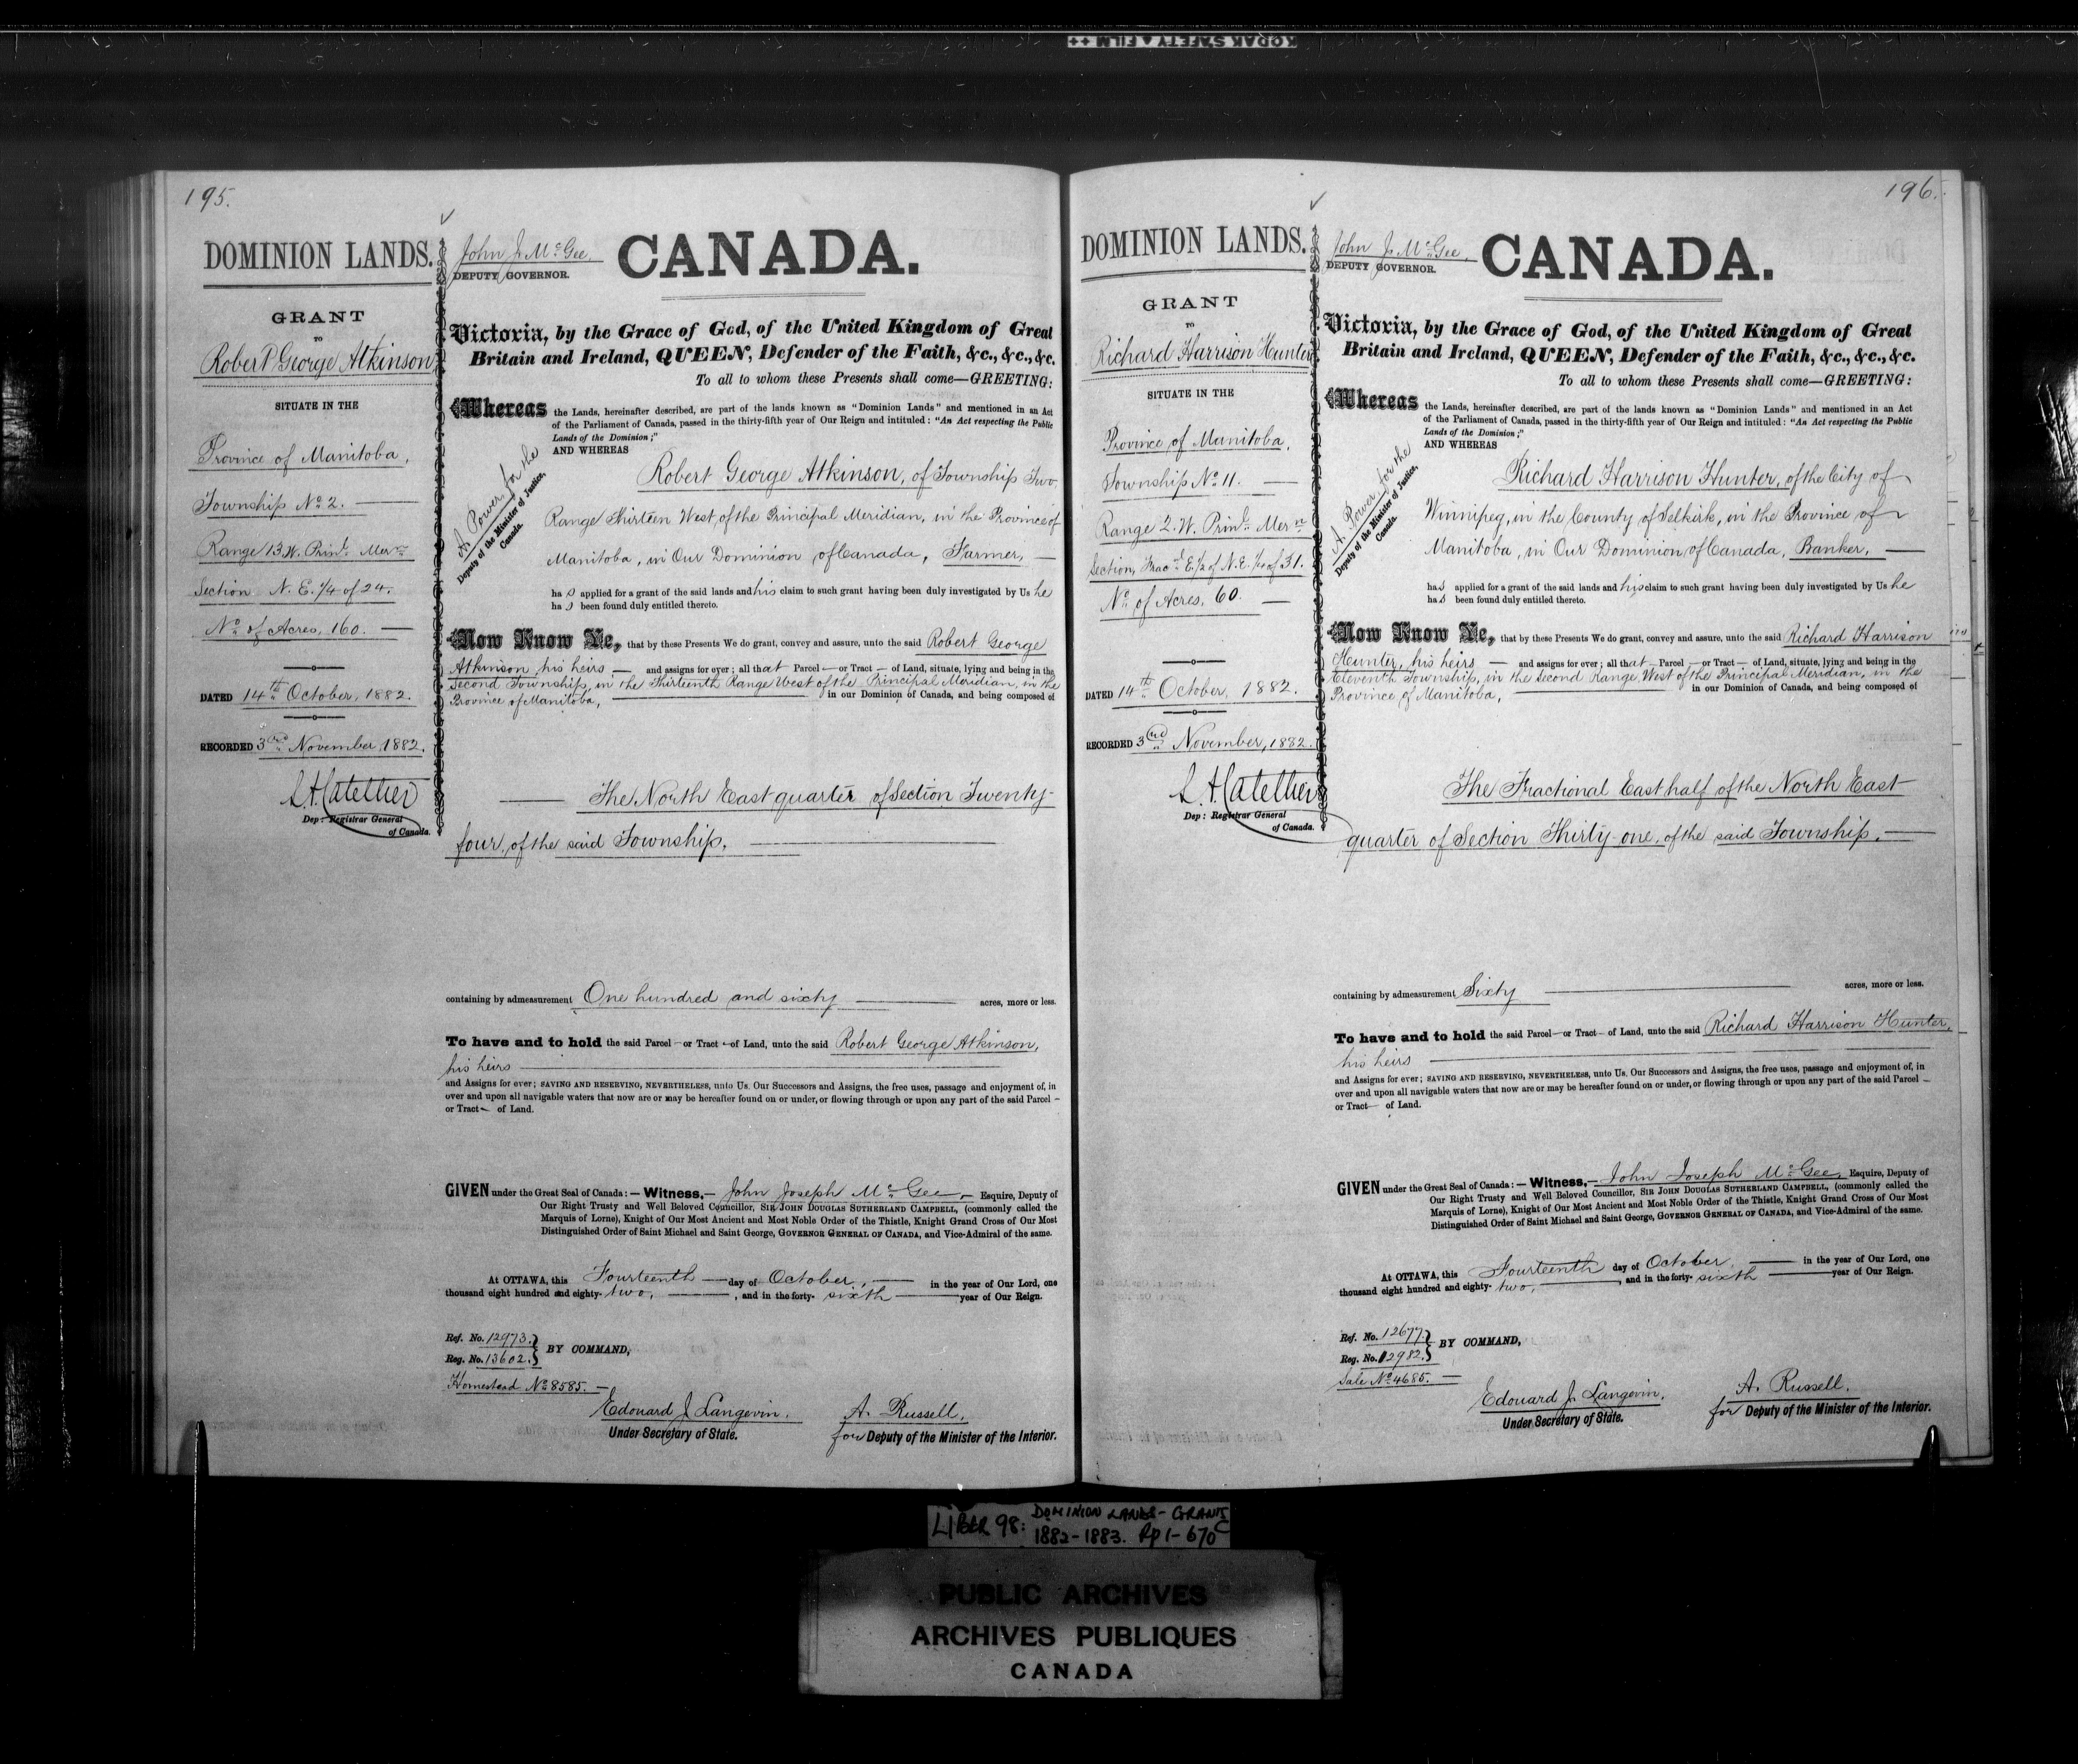 KODAK SAFETY FILM ++
195.
DOMINION LANDS.
GRANT
TO
Robert George Atkinson
SITUATE IN THE
Province of Manitoba,
Township No 2.
Range 13. W. Prinl. Mern
Section N. E. 1/4 of 24.
No of Acres, 160.
DATED 14th October, 1882.
RECORDED 3rd November, 1882.
L. A. Catellier
Dep: Registrar General
of Canada.
John J. McGee,
DEPUTY GOVERNOR.
CANADA.
Victoria, by the Grace of God, of the United Kingdom of Great
Britain and Ireland, QUEEN, Defender of the Faith, &c., &c., &c.
To all to whom these Presents shall come—GREETING:
Whereas the Lands, hereinafter described, are part of the lands known as "Dominion Lands" and mentioned in an Act
of the Parliament of Canada, passed in the thirty-fifth year of Our Reign and intituled: "An Act respecting the Public
Lands of the Dominion;"
AND WHEREAS
A. Power for the
Deputy of the Minister of Justice,
Canada.
Robert George Atkinson, of Township Two,
Range Thirteen West, of the Principal Meridian, in the Province of
Manitoba, in Our Dominion of Canada, Farmer,
has applied for a grant of the said lands and his claim to such grant having been duly investigated by Us he
has been found duly entitled thereto.
Now Know Ye, that by these Presents We do grant, convey and assure, unto the said Robert George
Atkinson, his heirs — and assigns for ever; all that Parcel — or Tract — of Land, situate, lying and being in the
Second Township, in the Thirteenth Range West of the Principal Meridian, in the
Province of Manitoba, in our Dominion of Canada, and being composed of
The North East quarter of Section Twenty-
four, of the said Township.
containing by admeasurement One hundred and sixty acres, more or less.
To have and to hold the said Parcel — or Tract — of Land, unto the said Robert George Atkinson,
his heirs
and Assigns for ever; SAVING AND RESERVING, NEVERTHELESS, unto Us. Our Successors and Assigns, the free uses, passage and enjoyment of, in
over and upon all navigable waters that now are or may be hereafter found on or under, or flowing through or upon any part of the said Parcel —
or Tract — of Land.
GIVEN under the Great Seal of Canada: — Witness,— John Joseph McGee, — Esquire, Deputy of
Our Right Trusty and Well Beloved Councillor, SIR JOHN DOUGLAS SUTHERLAND CAMPBELL, (commonly called the
Marquis of Lorne), Knight of Our Most Ancient and Most Noble Order of the Thistle, Knight Grand Cross of Our Most
Distinguished Order of Saint Michael and Saint George, GOVERNOR GENERAL OF CANADA, and Vice-Admiral of the same.
At OTTAWA, this Fourteenth — day of October, — in the year of Our Lord, one
thousand eight hundred and eighty-two, , and in the forty-sixth year of Our Reign.
Ref. No. 12973.
Reg. No. 13602. } BY COMMAND,
Homestead No 8585. —
Edouard J. Langevin. A. Russell,
Under Secretary of State. for Deputy of the Minister of the Interior.
196.
DOMINION LANDS.
GRANT
TO
Richard Harrison Hunter
SITUATE IN THE
Province of Manitoba,
Township No 11.
Range 2. W. Prinl. Mern
Section, Fracl E. 1/2 of N. E. 1/4 of 31.
No of Acres, 60.
DATED 14th October, 1882.
RECORDED 3rd November, 1882.
L. A. Catellier
Dep: Registrar General
of Canada.
John J. McGee,
DEPUTY GOVERNOR.
CANADA.
Victoria, by the Grace of God, of the United Kingdom of Great
Britain and Ireland, QUEEN, Defender of the Faith, &c., &c., &c.
To all to whom these Presents shall come—GREETING:
Whereas the Lands, hereinafter described, are part of the lands known as "Dominion Lands" and mentioned in an Act
of the Parliament of Canada, passed in the thirty-fifth year of Our Reign and intituled: "An Act respecting the Public
Lands of the Dominion;"
AND WHEREAS
A. Power for the
Deputy of the Minister of Justice,
Canada.
Richard Harrison Hunter, of the City of
Winnipeg, in the County of Selkirk, in the Province of
Manitoba, in Our Dominion of Canada, Banker,
has applied for a grant of the said lands and his claim to such grant having been duly investigated by Us he
has been found duly entitled thereto.
Now Know Ye, that by these Presents We do grant, convey and assure, unto the said Richard Harrison
Hunter, his heirs — and assigns for ever; all that Parcel — or Tract — of Land, situate, lying and being in the
Eleventh Township, in the Second Range West of the Principal Meridian, in the
Province of Manitoba, in our Dominion of Canada, and being composed of
The Fractional East half of the North East
quarter of Section Thirty-one, of the said Township.
containing by admeasurement Sixty acres, more or less.
To have and to hold the said Parcel — or Tract — of Land, unto the said Richard Harrison Hunter,
his heirs
and Assigns for ever; SAVING AND RESERVING, NEVERTHELESS, unto Us. Our Successors and Assigns, the free uses, passage and enjoyment of, in
over and upon all navigable waters that now are or may be hereafter found on or under, or flowing through or upon any part of the said Parcel —
or Tract — of Land.
GIVEN under the Great Seal of Canada: — Witness,— John Joseph McGee, Esquire, Deputy of
Our Right Trusty and Well Beloved Councillor, SIR JOHN DOUGLAS SUTHERLAND CAMPBELL, (commonly called the
Marquis of Lorne), Knight of Our Most Ancient and Most Noble Order of the Thistle, Knight Grand Cross of Our Most
Distinguished Order of Saint Michael and Saint George, GOVERNOR GENERAL OF CANADA, and Vice-Admiral of the same.
At OTTAWA, this Fourteenth day of October, — in the year of Our Lord, one
thousand eight hundred and eighty-two, , and in the forty-sixth year of Our Reign.
Ref. No. 12677.
Reg. No. 12982. } BY COMMAND,
Sale No. 4685. —
Edouard J. Langevin. A. Russell.
Under Secretary of State. for Deputy of the Minister of the Interior.
LIBER 98: DOMINION LANDS - GRANTS
1882-1883. Pp 1-670C
PUBLIC ARCHIVES
ARCHIVES PUBLIQUES
CANADA